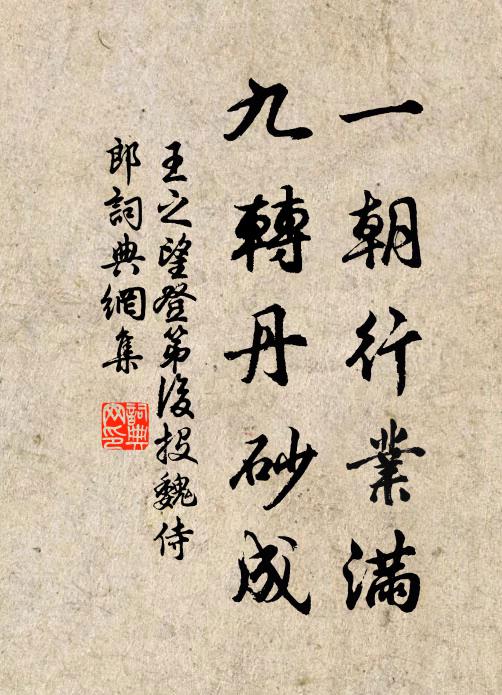 一朝行業滿
九轉丹砂成
王之望登第後投魏侍
郎詞典網集
詞典
网印